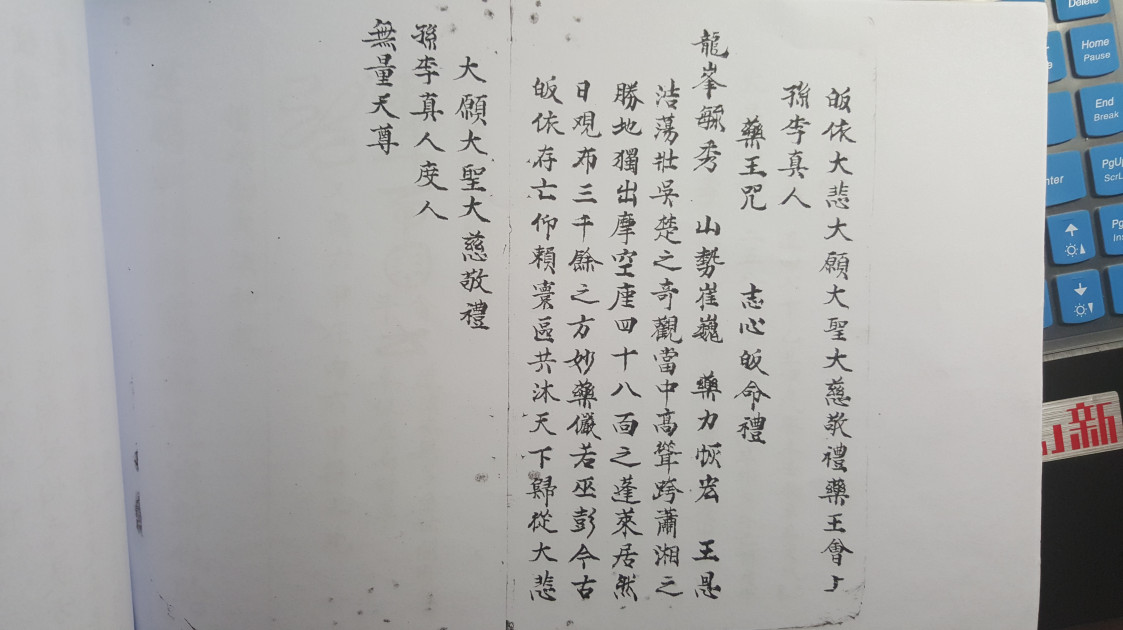 皈依大悲大願大聖大慈敬禮藥王會上
孫李真人
藥王咒 志心皈命禮
龍峯毓秀 山勢崔巍 藥力恢宏 王恩
浩蕩壯吳楚之奇觀當中高聳跨瀟湘之
勝地獨出摩空座四十八面之蓬萊居然
日觀布三千餘之方妙藥儼若巫彭今古
皈依存亡仰賴寰區共沐天下歸從大悲
大願大聖大慈敬禮
孫李真人度人
無量天尊
Delete
Home
Pause
End
Break
PgUp
ScrL
nter
Pg
Ins
新